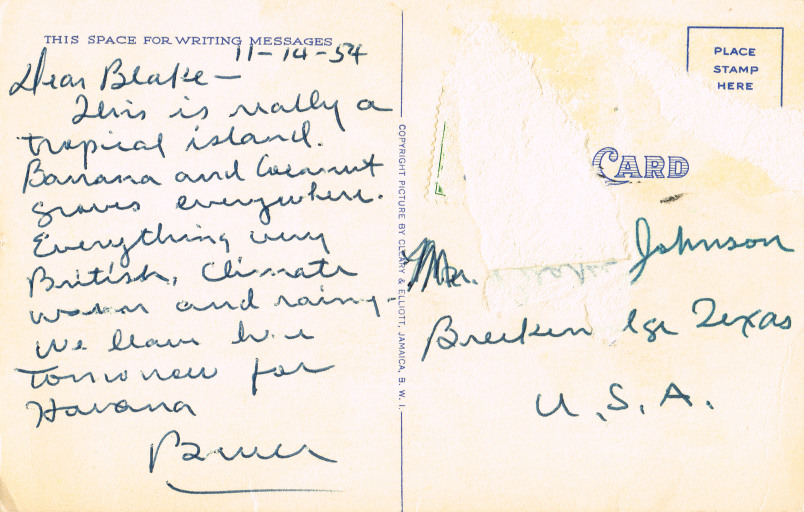 THIS SPACE FOR WRITING MESSAGES
11-14-54
Dear Blake—
This is really a
tropical island.
Banana and Coconut
groves everywhere.
Everything very
British, Climate
warm and rainy-
We leave here
tomorrow for
Havana
Bruce
COPYRIGHT PICTURE BY CLEARY & ELLIOTT, JAMAICA, B. W. I.
PLACE
STAMP
HERE
CARD
Mr. Johnson
Texas
U.S.A.